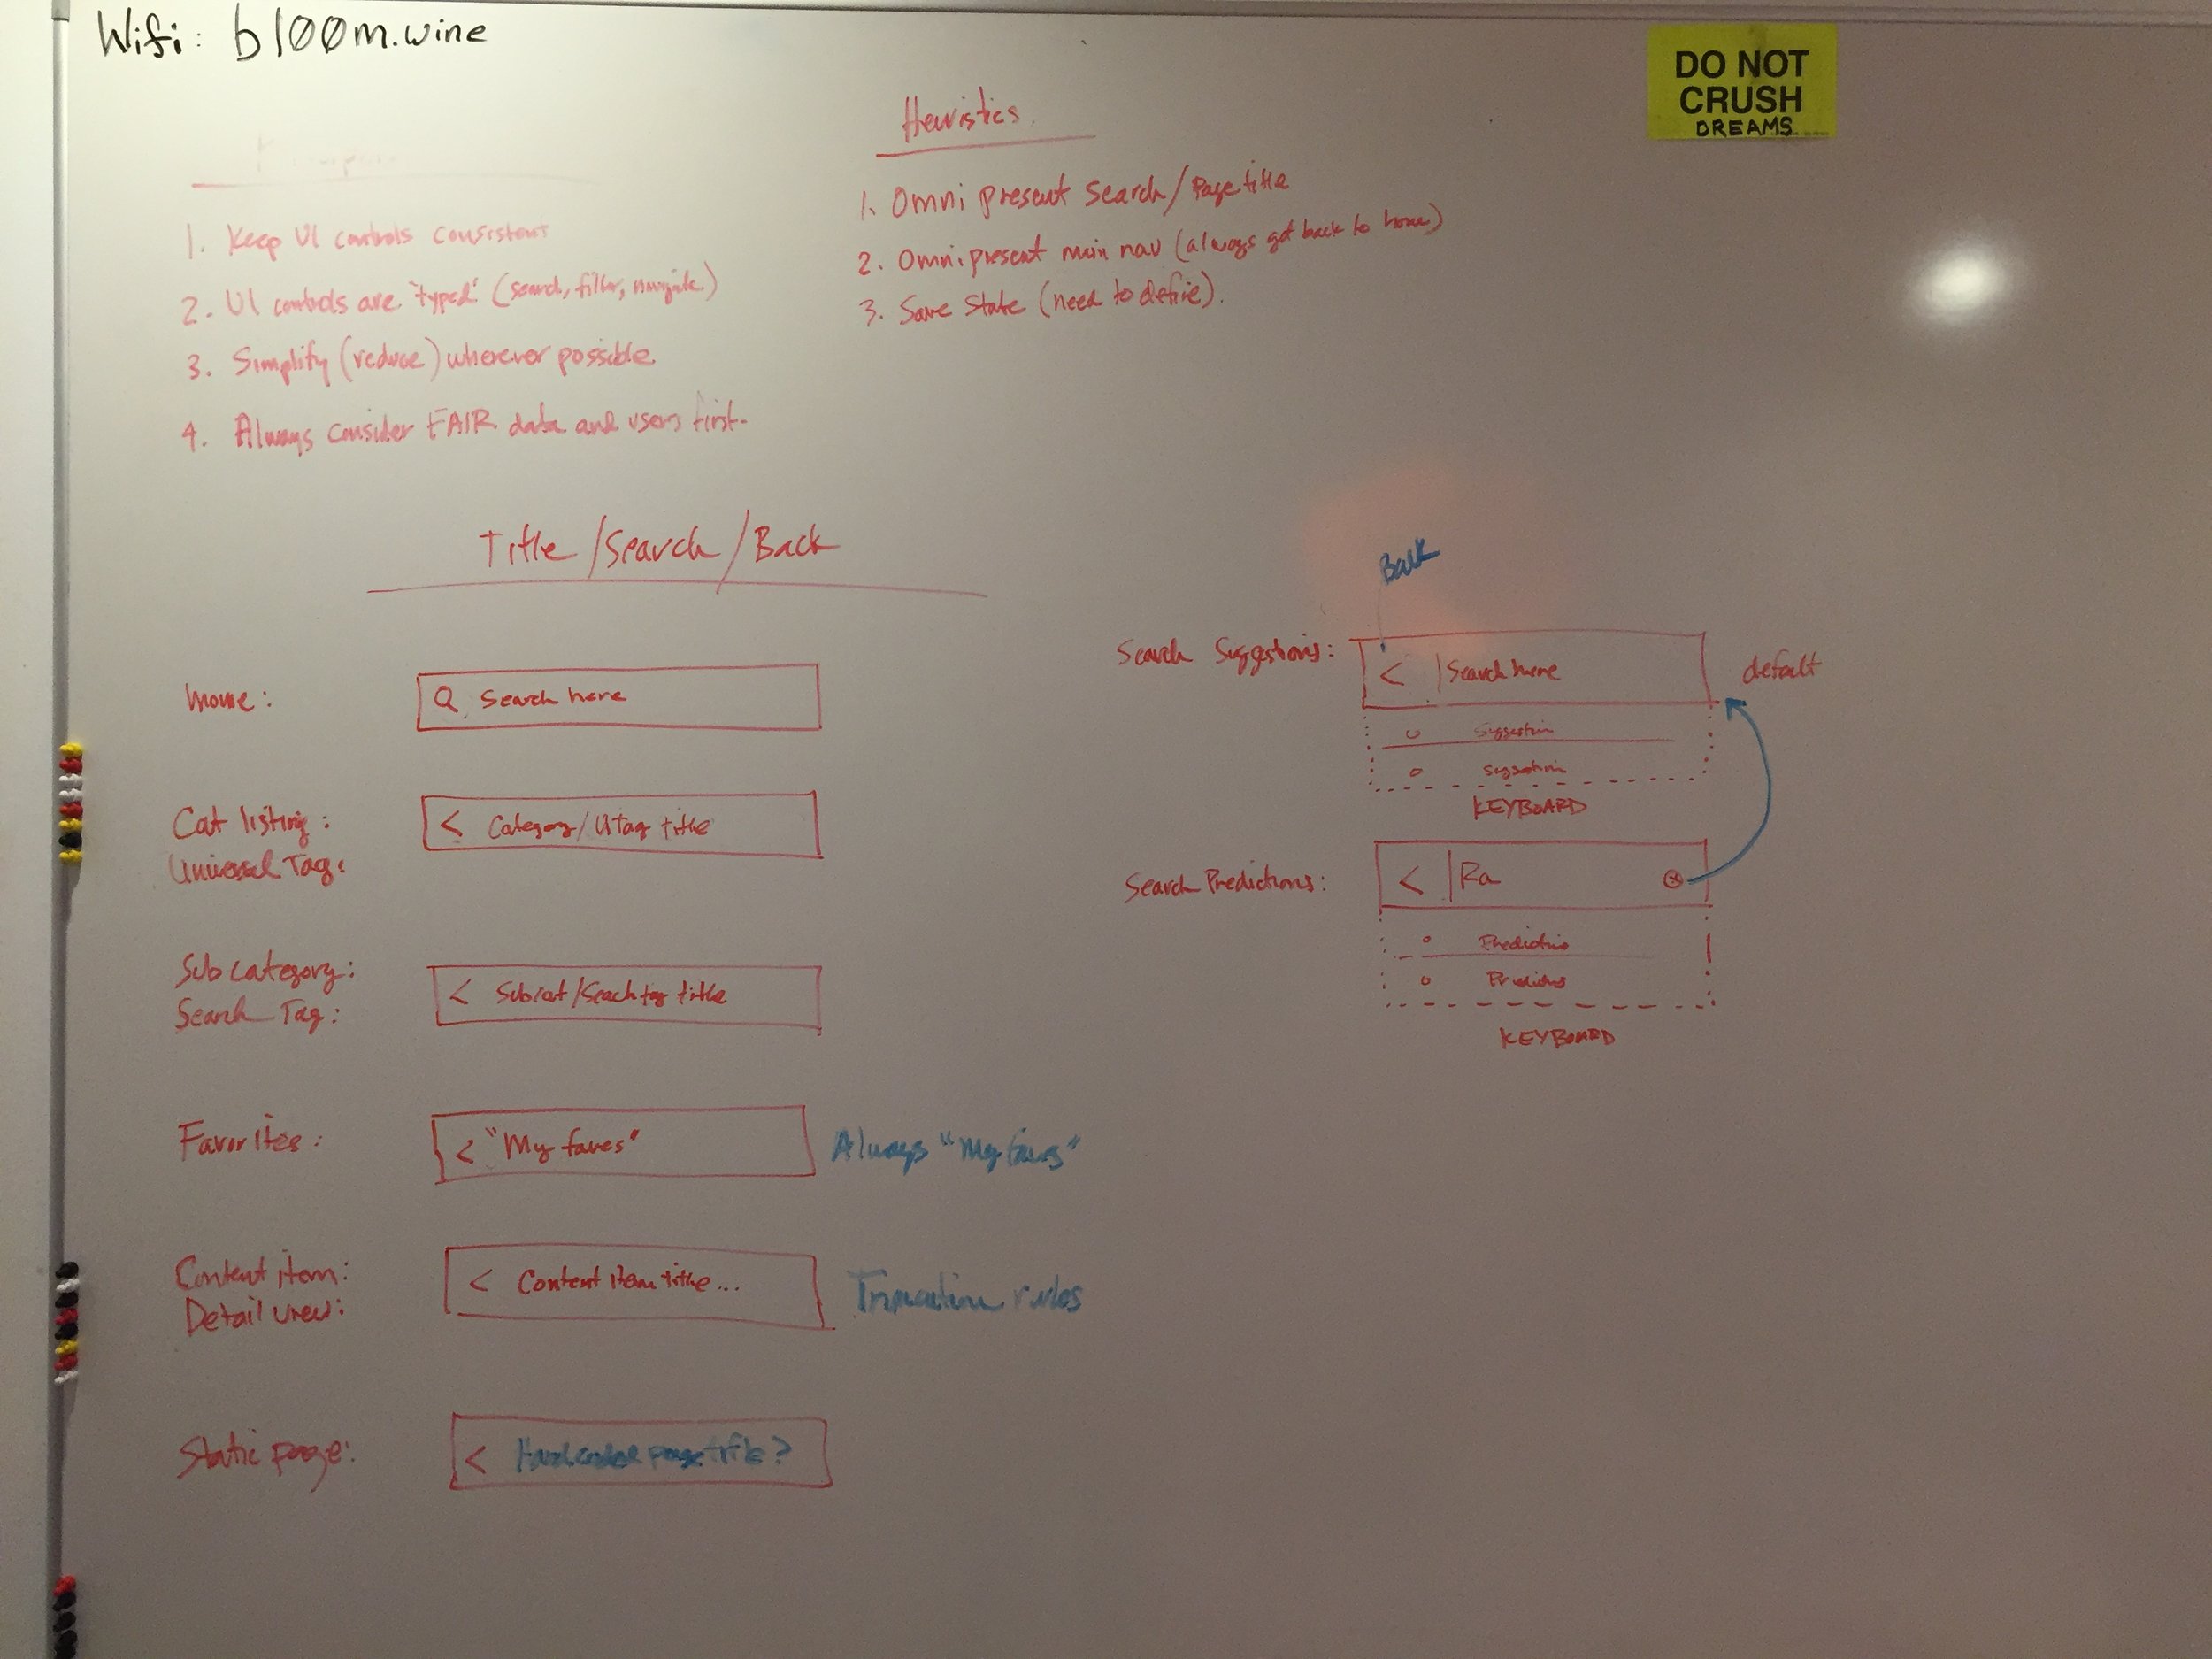 Wifi: bl00m.wine
DO NOT
CRUSH
DREAMS
1. Keep UI controls consistent
2. UI controls are "typed" (search, filter, navigate)
3. Simplify (reduce) wherever possible.
4. Always consider FAIR data and users first.
Heuristics
1. Omni present search/Page title
2. Omnipresent main nav (always get back to home)
3. Save State (need to define).
Title/Search/Back
Home:
Q Search here
Cat listing:
Universal Tag:
< Category/UTag title
Sub category:
Search Tag:
< Subcat/Seach tag title
Favorites:
< "My faves"
Always "My faves"
Content item:
Detail view:
< Content item title...
Truncation rules
Static page:
< Hard coded page title?
Back
Search Suggestions:
< |Search here
default
Suggestion
Suggestion
KEYBOARD
Search Predictions:
< |Ra
Prediction
Predictions
KEYBOARD